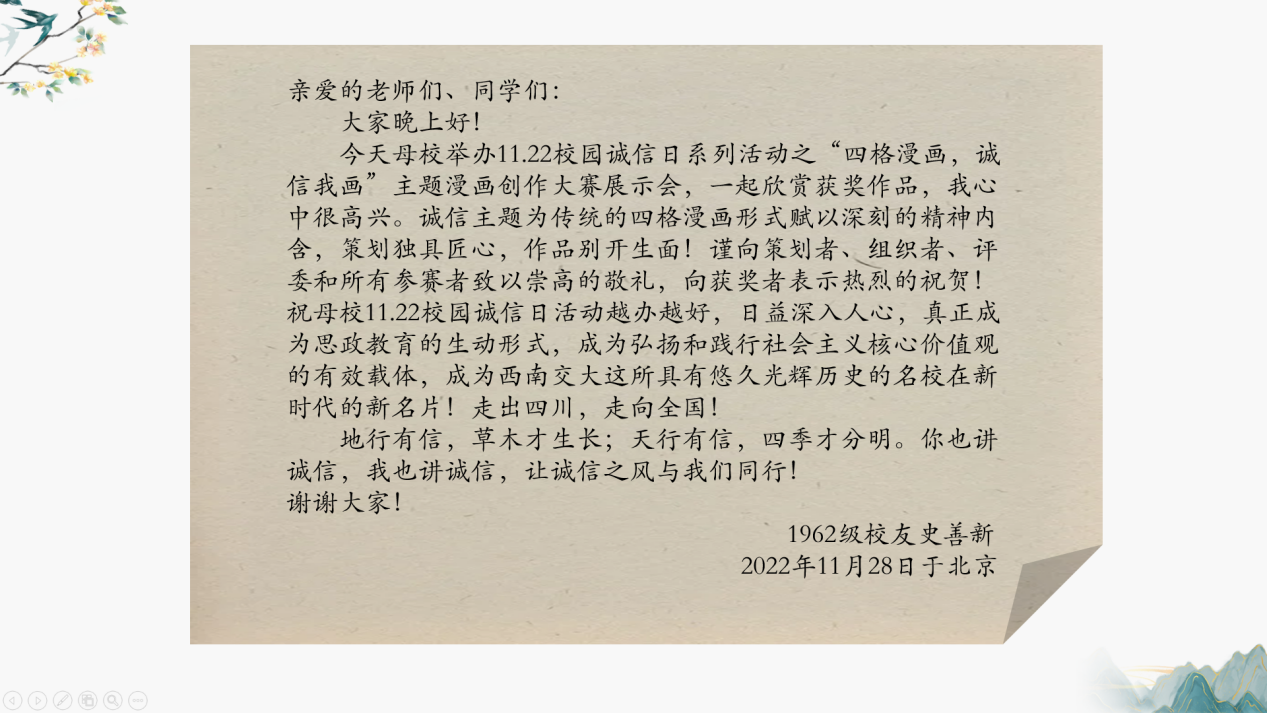 亲爱的老师们、同学们：
大家晚上好！
今天母校举办11.22校园诚信日系列活动之“四格漫画，诚
信我画”主题漫画创作大赛展示会，一起欣赏获奖作品，我心
中很高兴。诚信主题为传统的四格漫画形式赋以深刻的精神内
含，策划独具匠心，作品别开生面！谨向策划者、组织者、评
委和所有参赛者致以崇高的敬礼，向获奖者表示热烈的祝贺！
祝母校11.22校园诚信日活动越办越好，日益深入人心，真正成
为思政教育的生动形式，成为弘扬和践行社会主义核心价值观
的有效载体，成为西南交大这所具有悠久光辉历史的名校在新
时代的新名片！走出四川，走向全国！
地行有信，草木才生长；天行有信，四季才分明。你也讲
诚信，我也讲诚信，让诚信之风与我们同行！
谢谢大家！
1962级校友史善新
2022年11月28日于北京